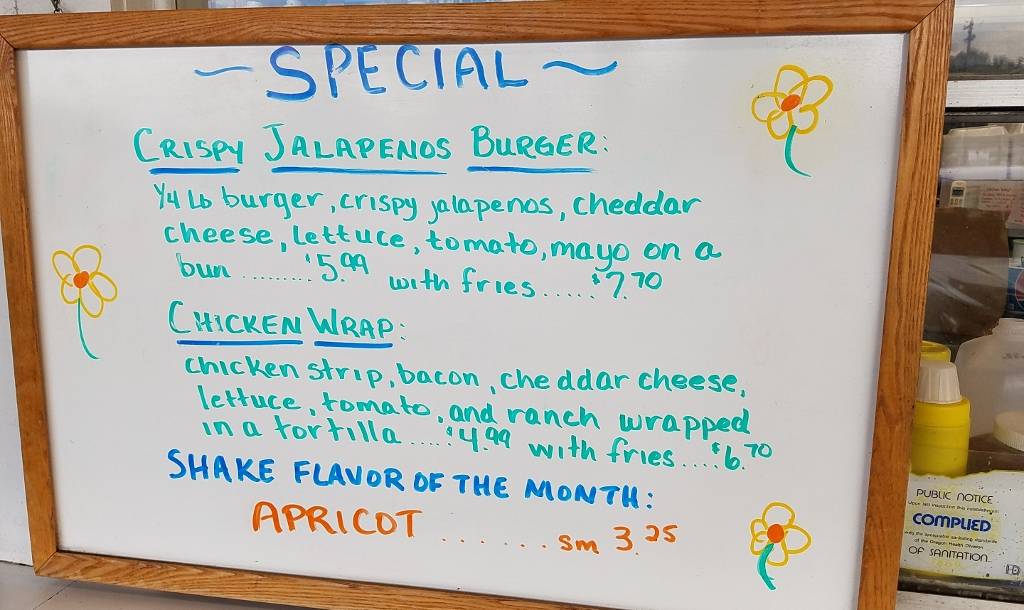 ~ SPECIAL ~
CRISPY JALAPENOS BURGER:
1/4 Lb burger, crispy jalapenos, cheddar
cheese, lettuce, tomato, mayo on a
bun ......... $5.99 with fries ..... $7.70
CHICKEN WRAP:
chicken strip, bacon, cheddar cheese,
lettuce, tomato, and ranch wrapped
in a tortilla .... $4.99 with fries .... $6.70
SHAKE FLAVOR OF THE MONTH:
APRICOT ...... sm 3.25
PUBLIC NOTICE
COMPLIED
of the Oregon Health Division
OF SANITATION